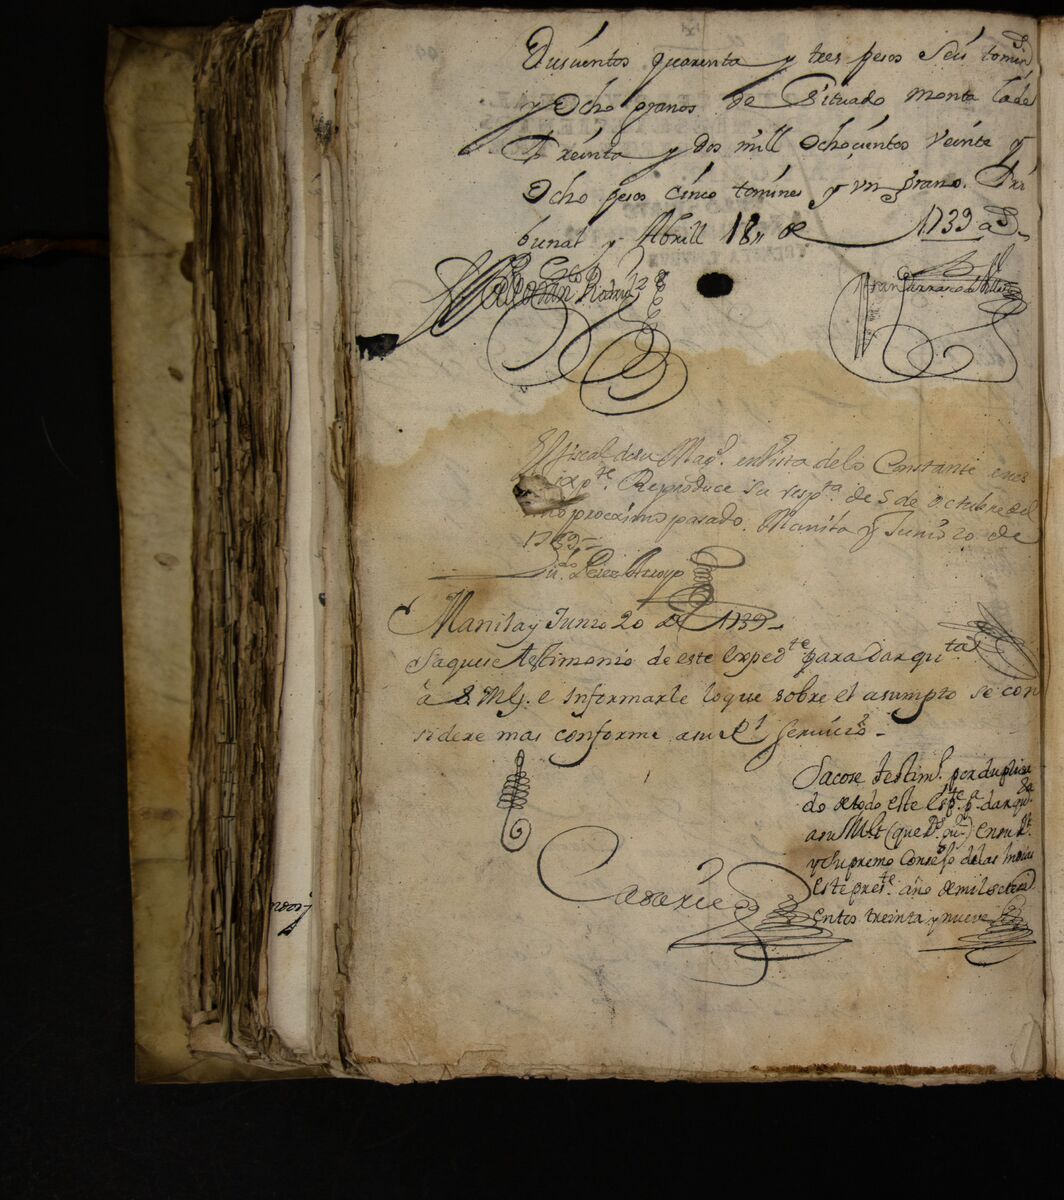 Dusientos quarenta y tres pesos Seis tomin.s
y Ocho granos de Situado monta la de
Treinta y dos mill ochocientos veinte y
Ocho pesos Cinco tomines y un grano. Tri
bunal y Abrill 18,, de 1739 a.s
El fiscal de su Mag.d en Vista de lo Constante en es
exp.te Reproduce Su resp.ta de 5 de octubre del
año procximo pasado. Manila y Junio 20 de
1739
Manila y Junio 20 de 1739
Saquese testimonio de este Exped.te para dar qu.ta
à S. Mg. e Informarle lo que sobre el asumpto se con
sidere mas conforme a su R.l Servicio
Sacose testim.o por duplica
do de todo este Esp.te p.a dar q.ta
a su Mag (que D.s gu.e) en su R.l
y Supremo Consejo de las Indias
Este pres.te año de mil setesi
entos treinta y nueve